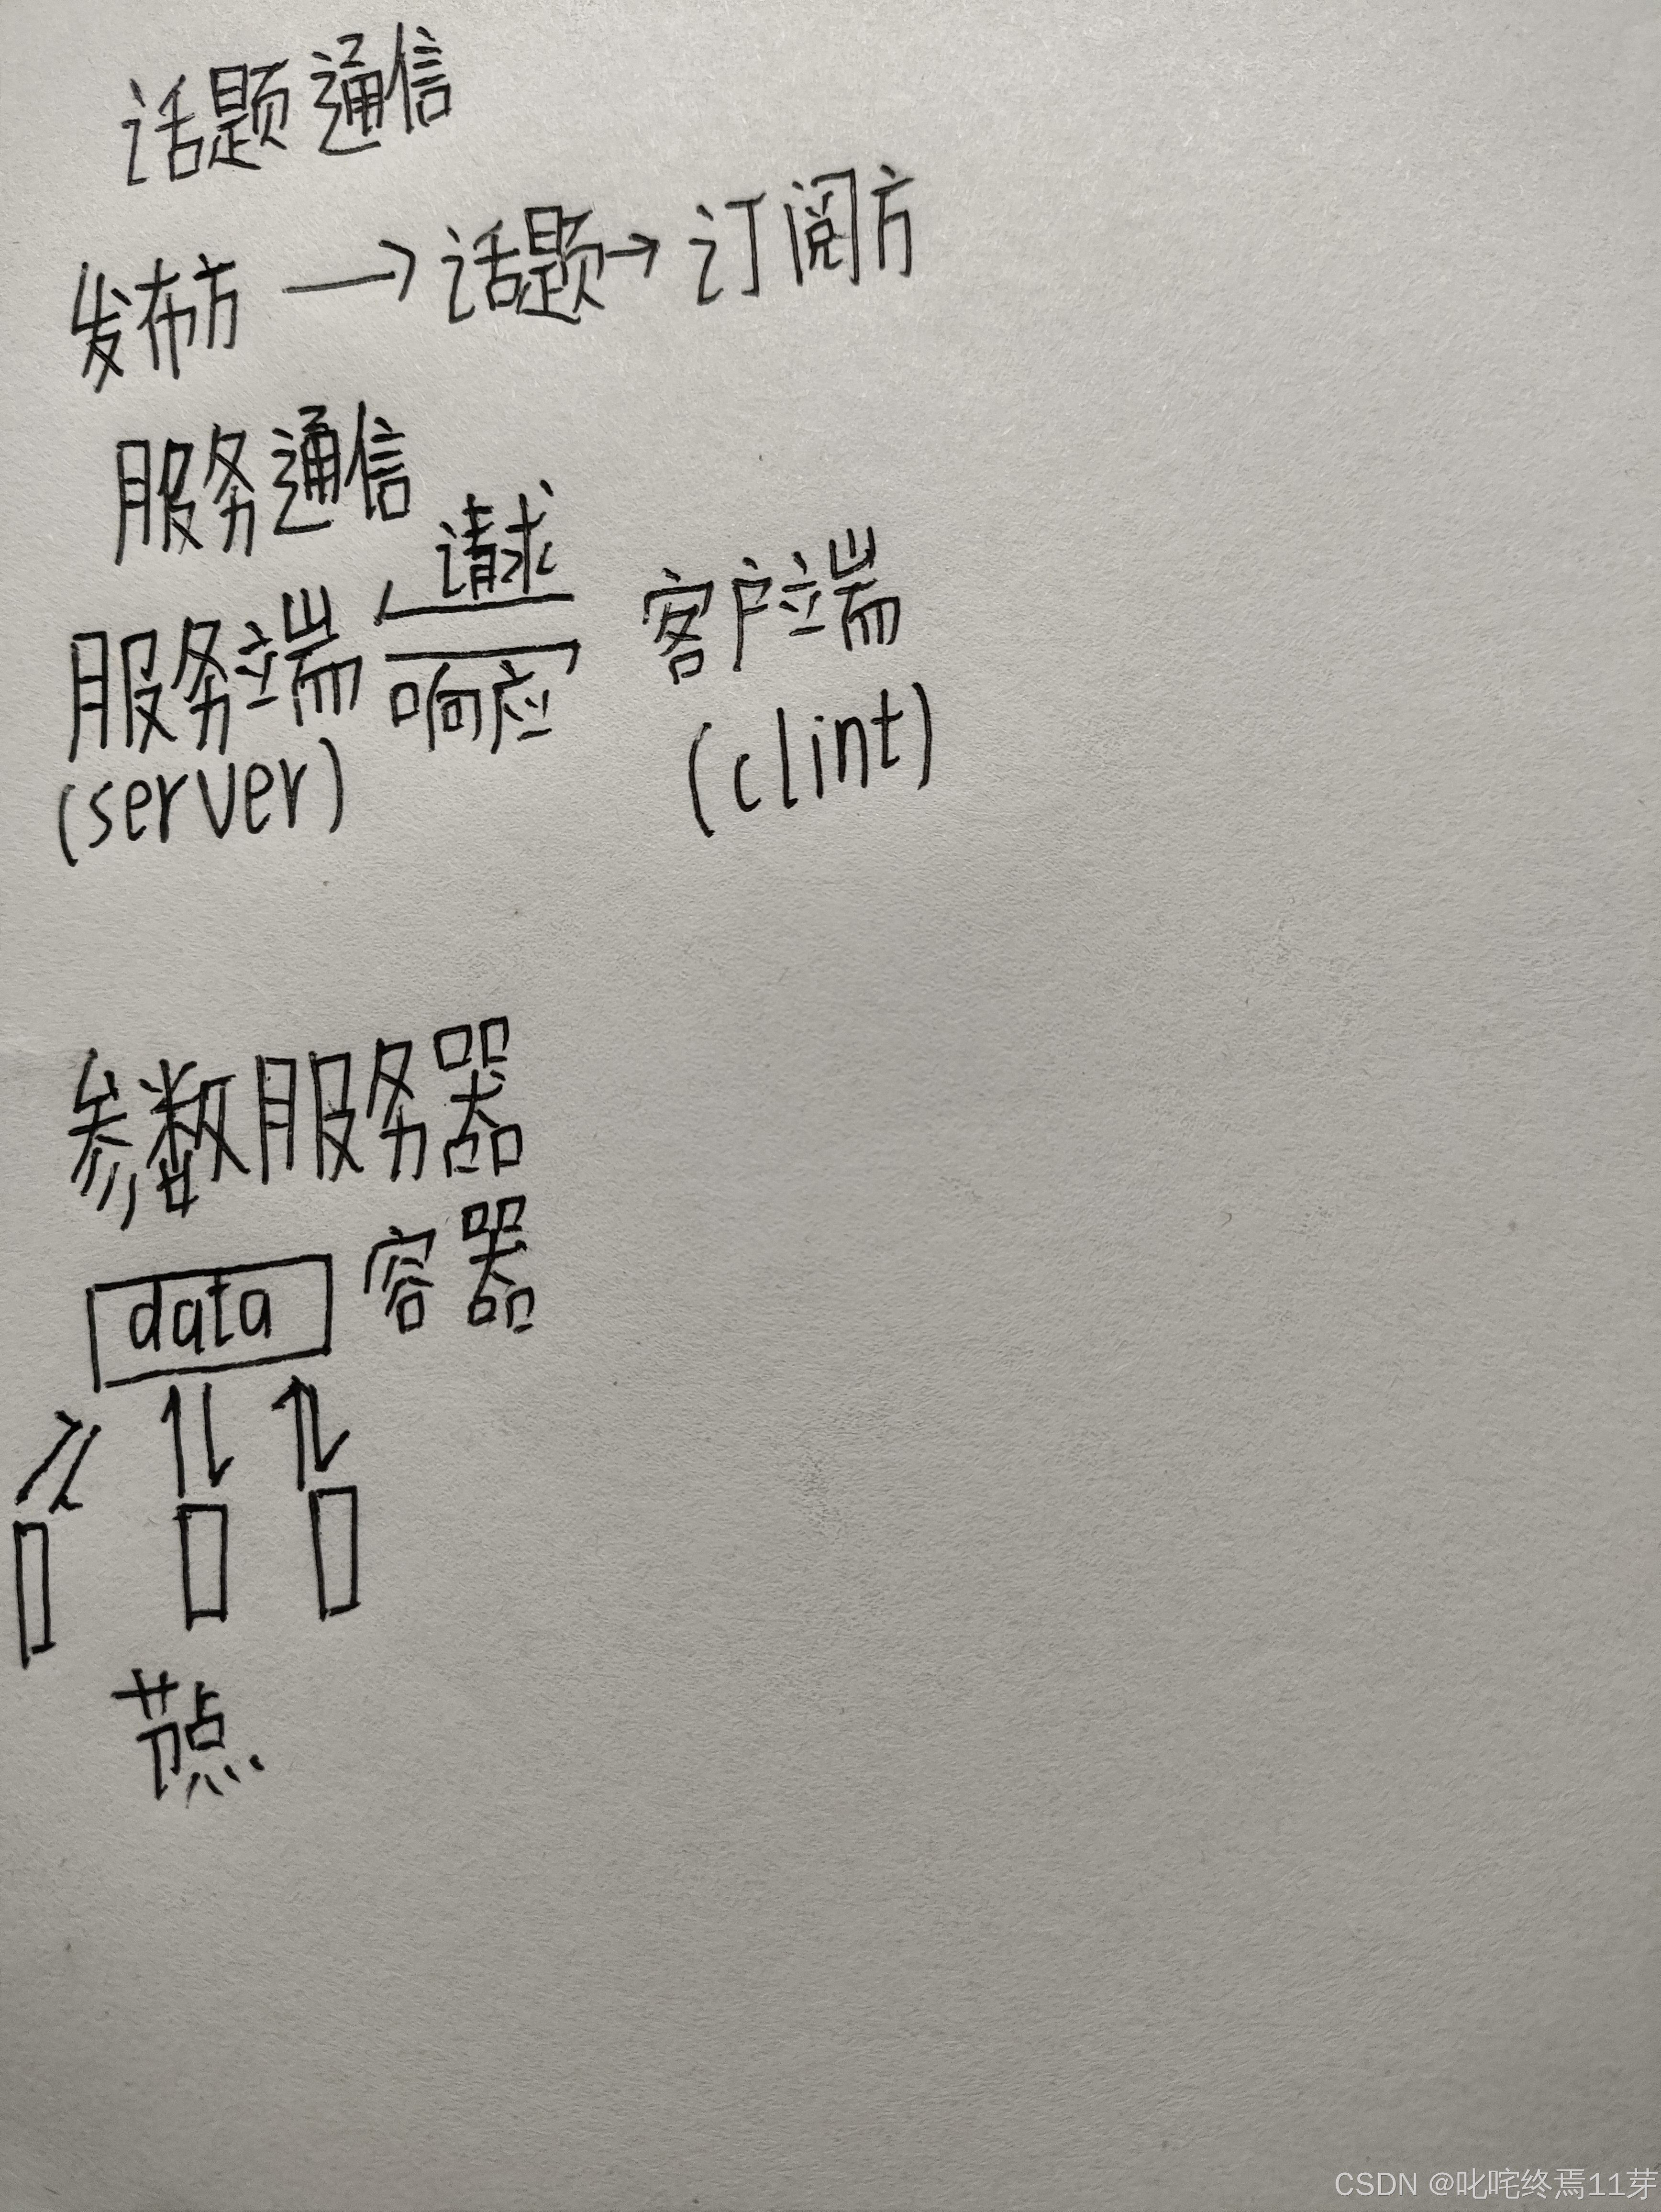 话题通信
发布方 → 话题 → 订阅方
服务通信
请求
服务端 客户端
响应
(server) (clint)
参数服务器
data 容器
节点
CSDN @叱咤终焉11芽